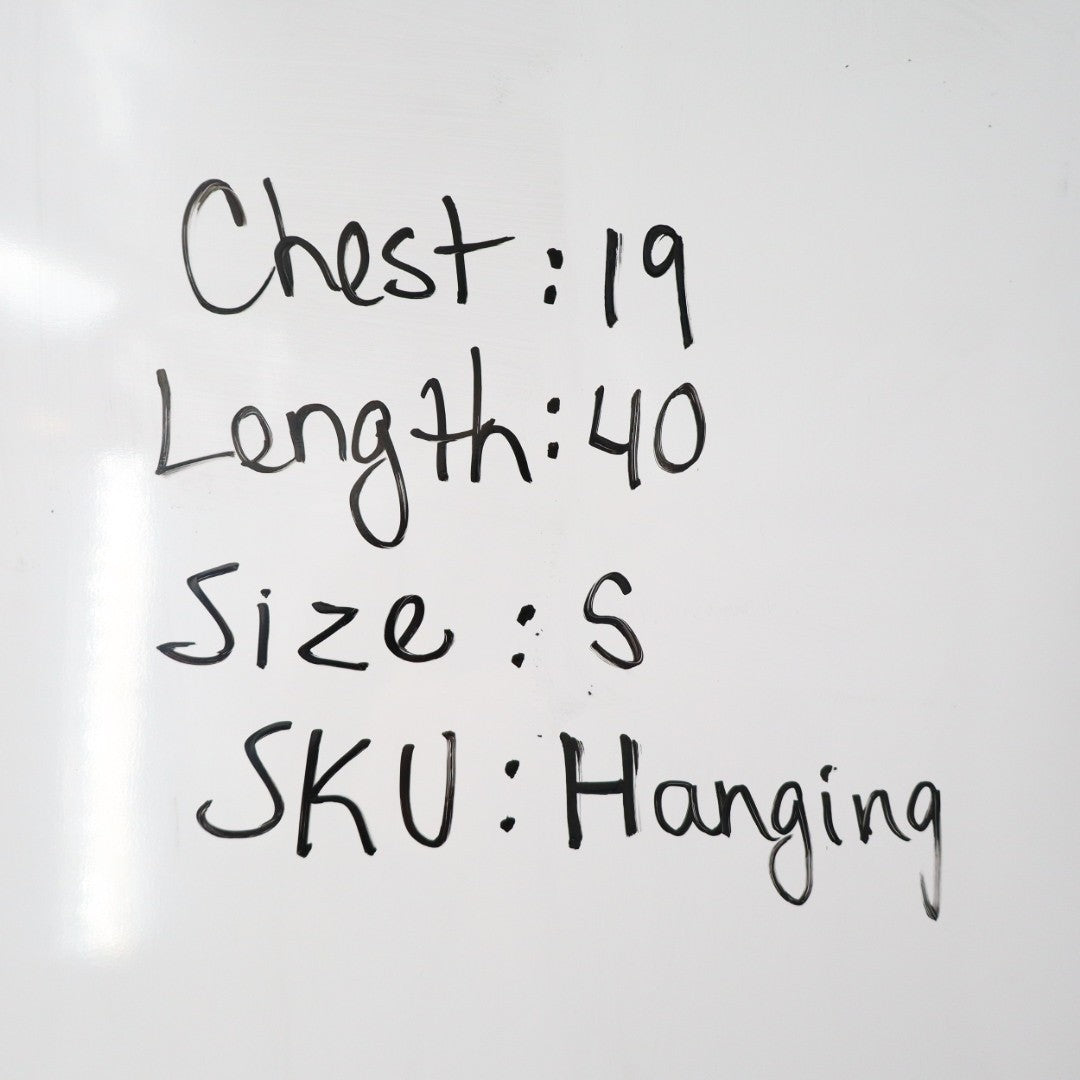 Chest: 19
Length: 40
Size: S
SKU: Hanging